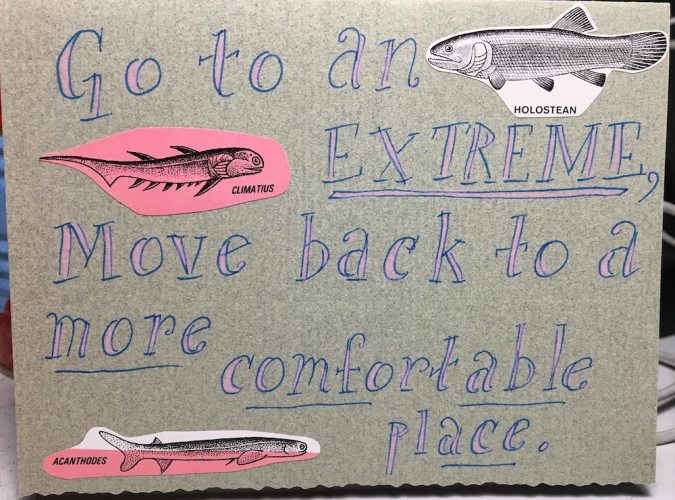 Go to an
HOLOSTEAN
EXTREME,
CLIMATIUS
Move back to a
more
comfortable
place.
ACANTHODES